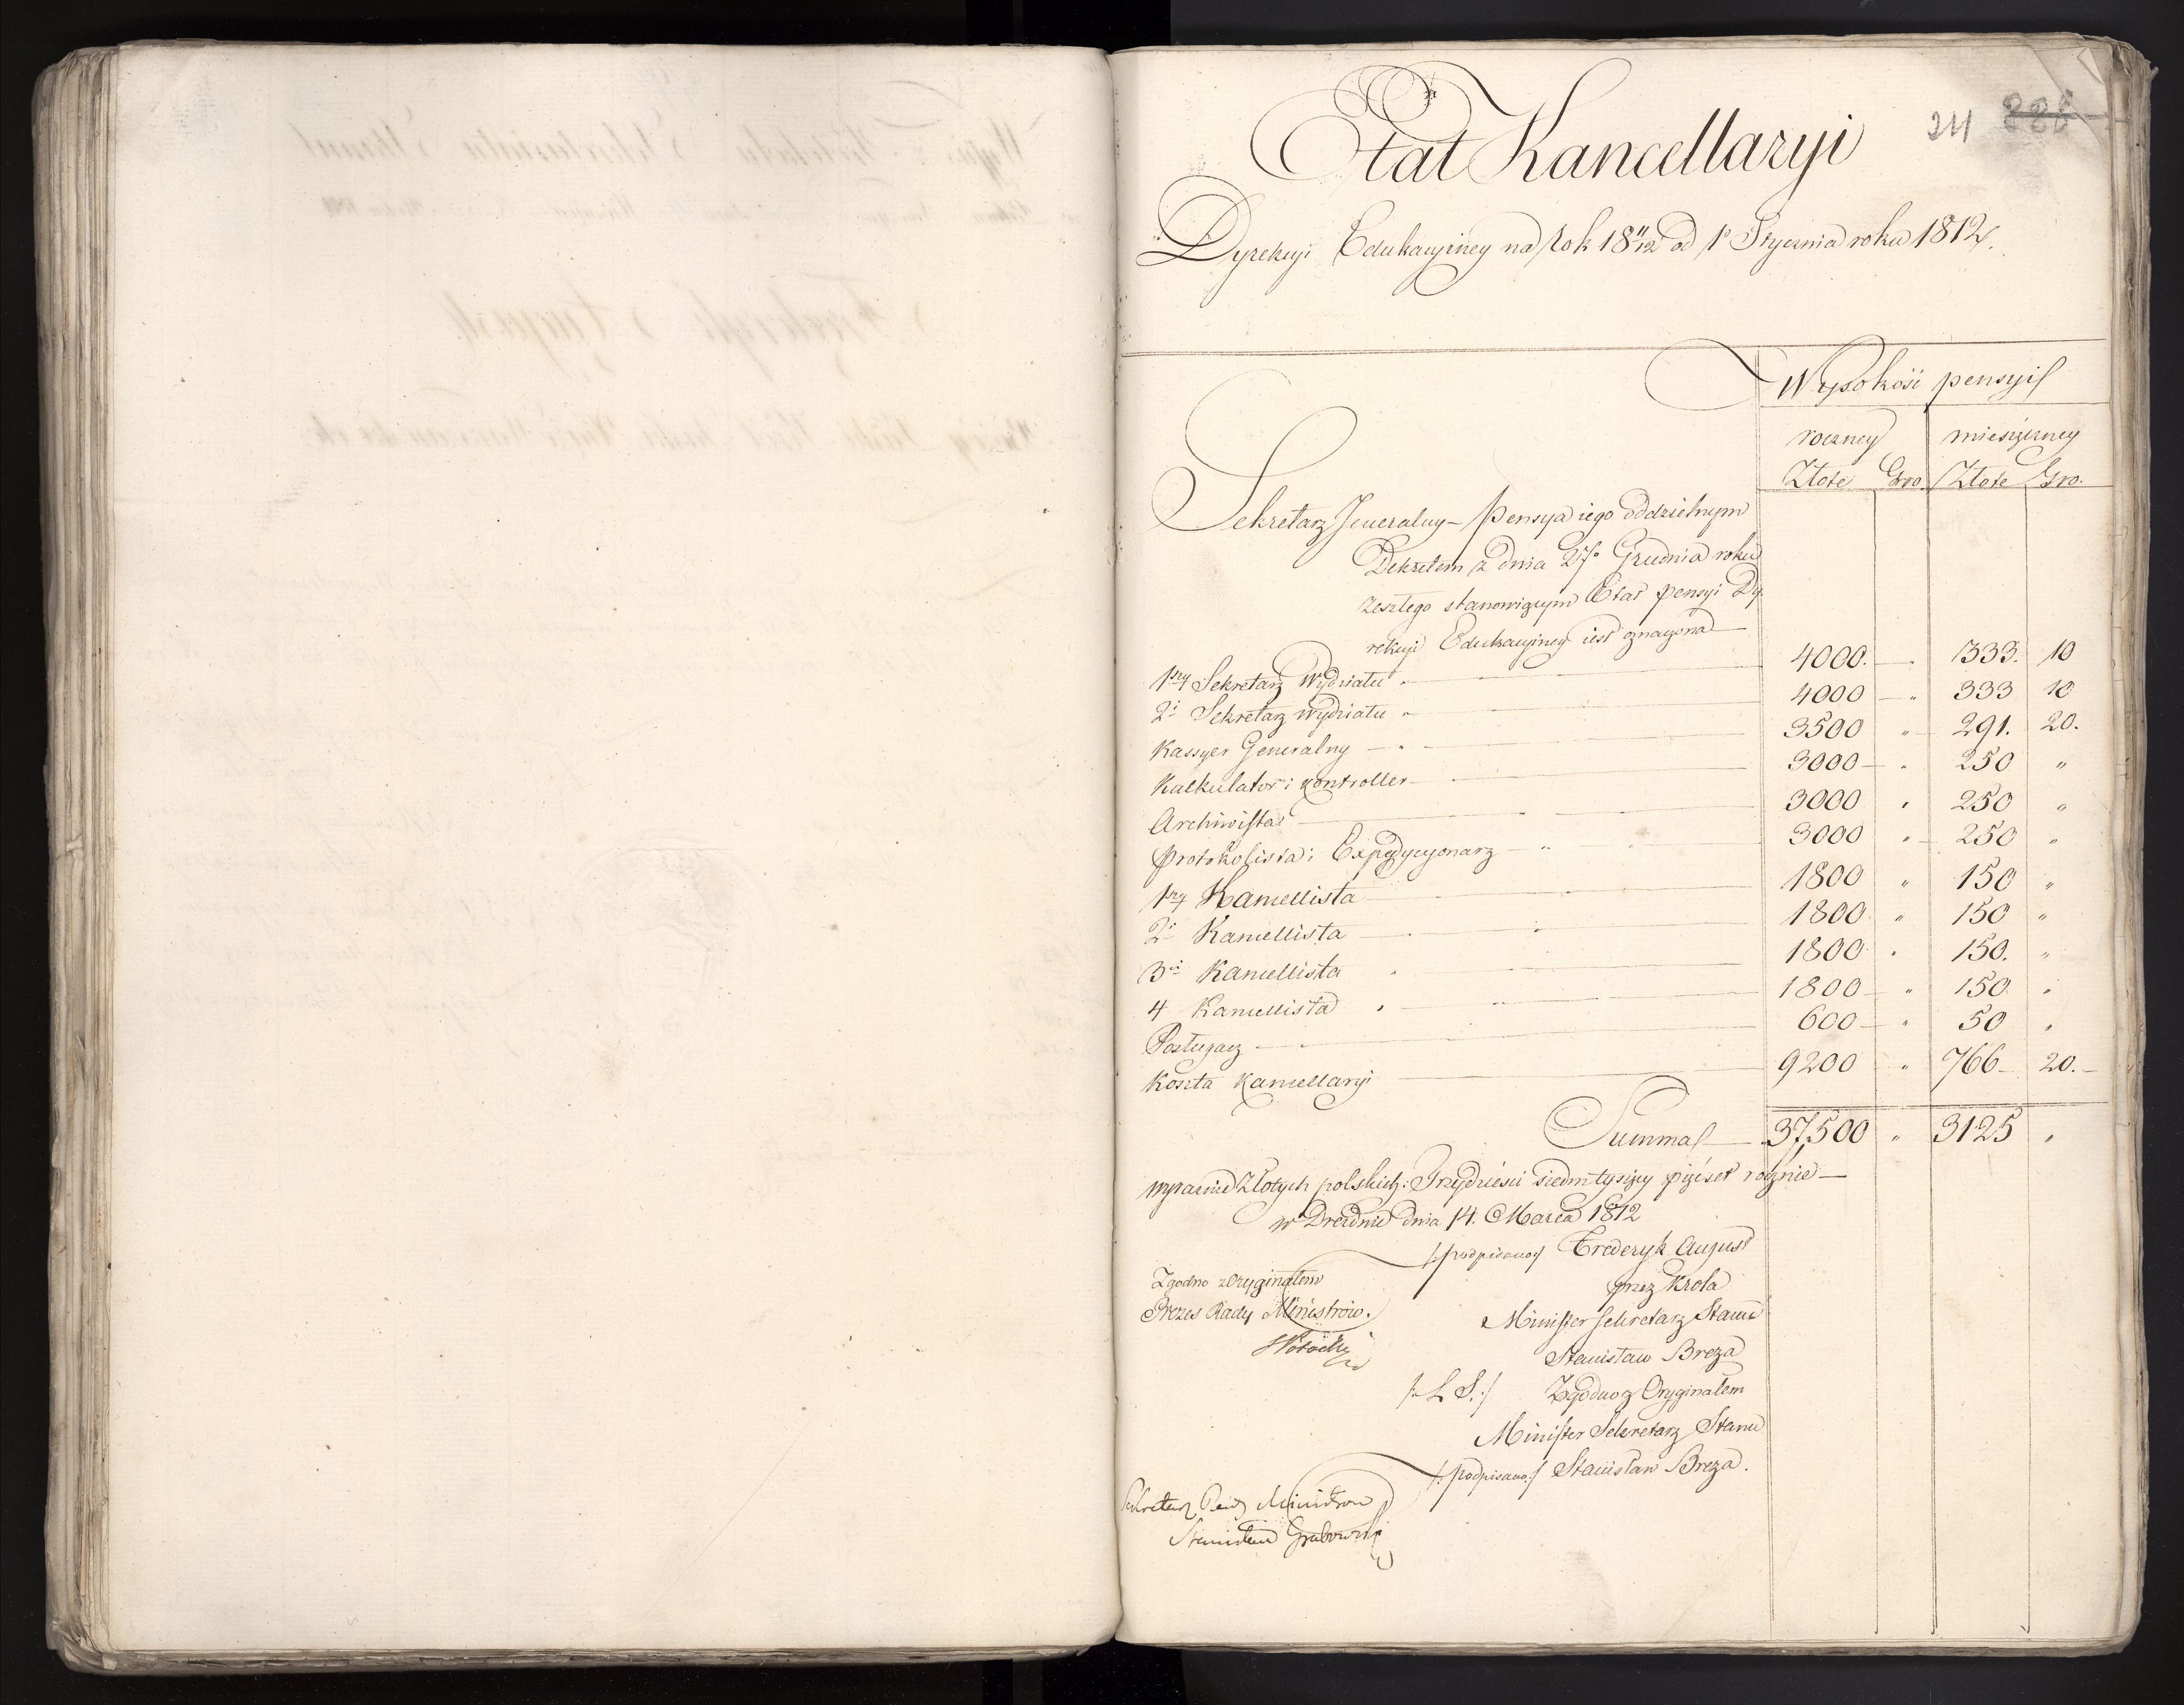 241 228
Etat Kancellaryi
Dyrekcyi Edukacyiney na rok 18 11/12 od 1o Stycznia roku 1812.
Wysokość pensyi
roczney miesięczney
Złote Gro. Złote Gro.
Sekretarz Jeneralny - Pensya iego oddzielnym
Dekretem z dnia 27o Grudnia roku
zeszłego stanowiącym Etat pensyi Dy-
rekcyi Edukacyiney iest oznaczona
1szy Sekretarz Wydziału 4000. " 333. 10
2i Sekretarz wydziału 4000 " 333 10
Kassyer Generalny 3500 " 291. 20.
Kalkulator i kontroller 3000 " 250 "
Archiwista 3000 " 250 "
Protokolista i Expedycyonarz 3000 " 250 "
1szy Kancellista 1800 " 150 "
2i Kancellista 1800 " 150 "
3ci Kancellista 1800 " 150. "
4 Kancellista 1800 " 150 "
Posługacz 600 " 50 "
Koszta Kancellaryi 9200 " 766 20.
Summa 37,500 " 3125 "
wyraźnie Złotych polskich: Trzydzieści siedm tysięcy pięćset rocznie
w Dreźnie dnia 14. Marca 1812
/:podpisano:/ Frederyk August
przez Krola
Minister Sekretarz Stanu
Stanisław Breza
Zgodno z Oryginałem
Prezes Rady Ministrów.
SPotocki
/:L S.:/ Zgodno z Oryginałem
Minister Sekretarz Stanu
/:podpisano:/ Stanisław Breza.
Sekretarz Rady Ministrow
Stanisław Grabowski